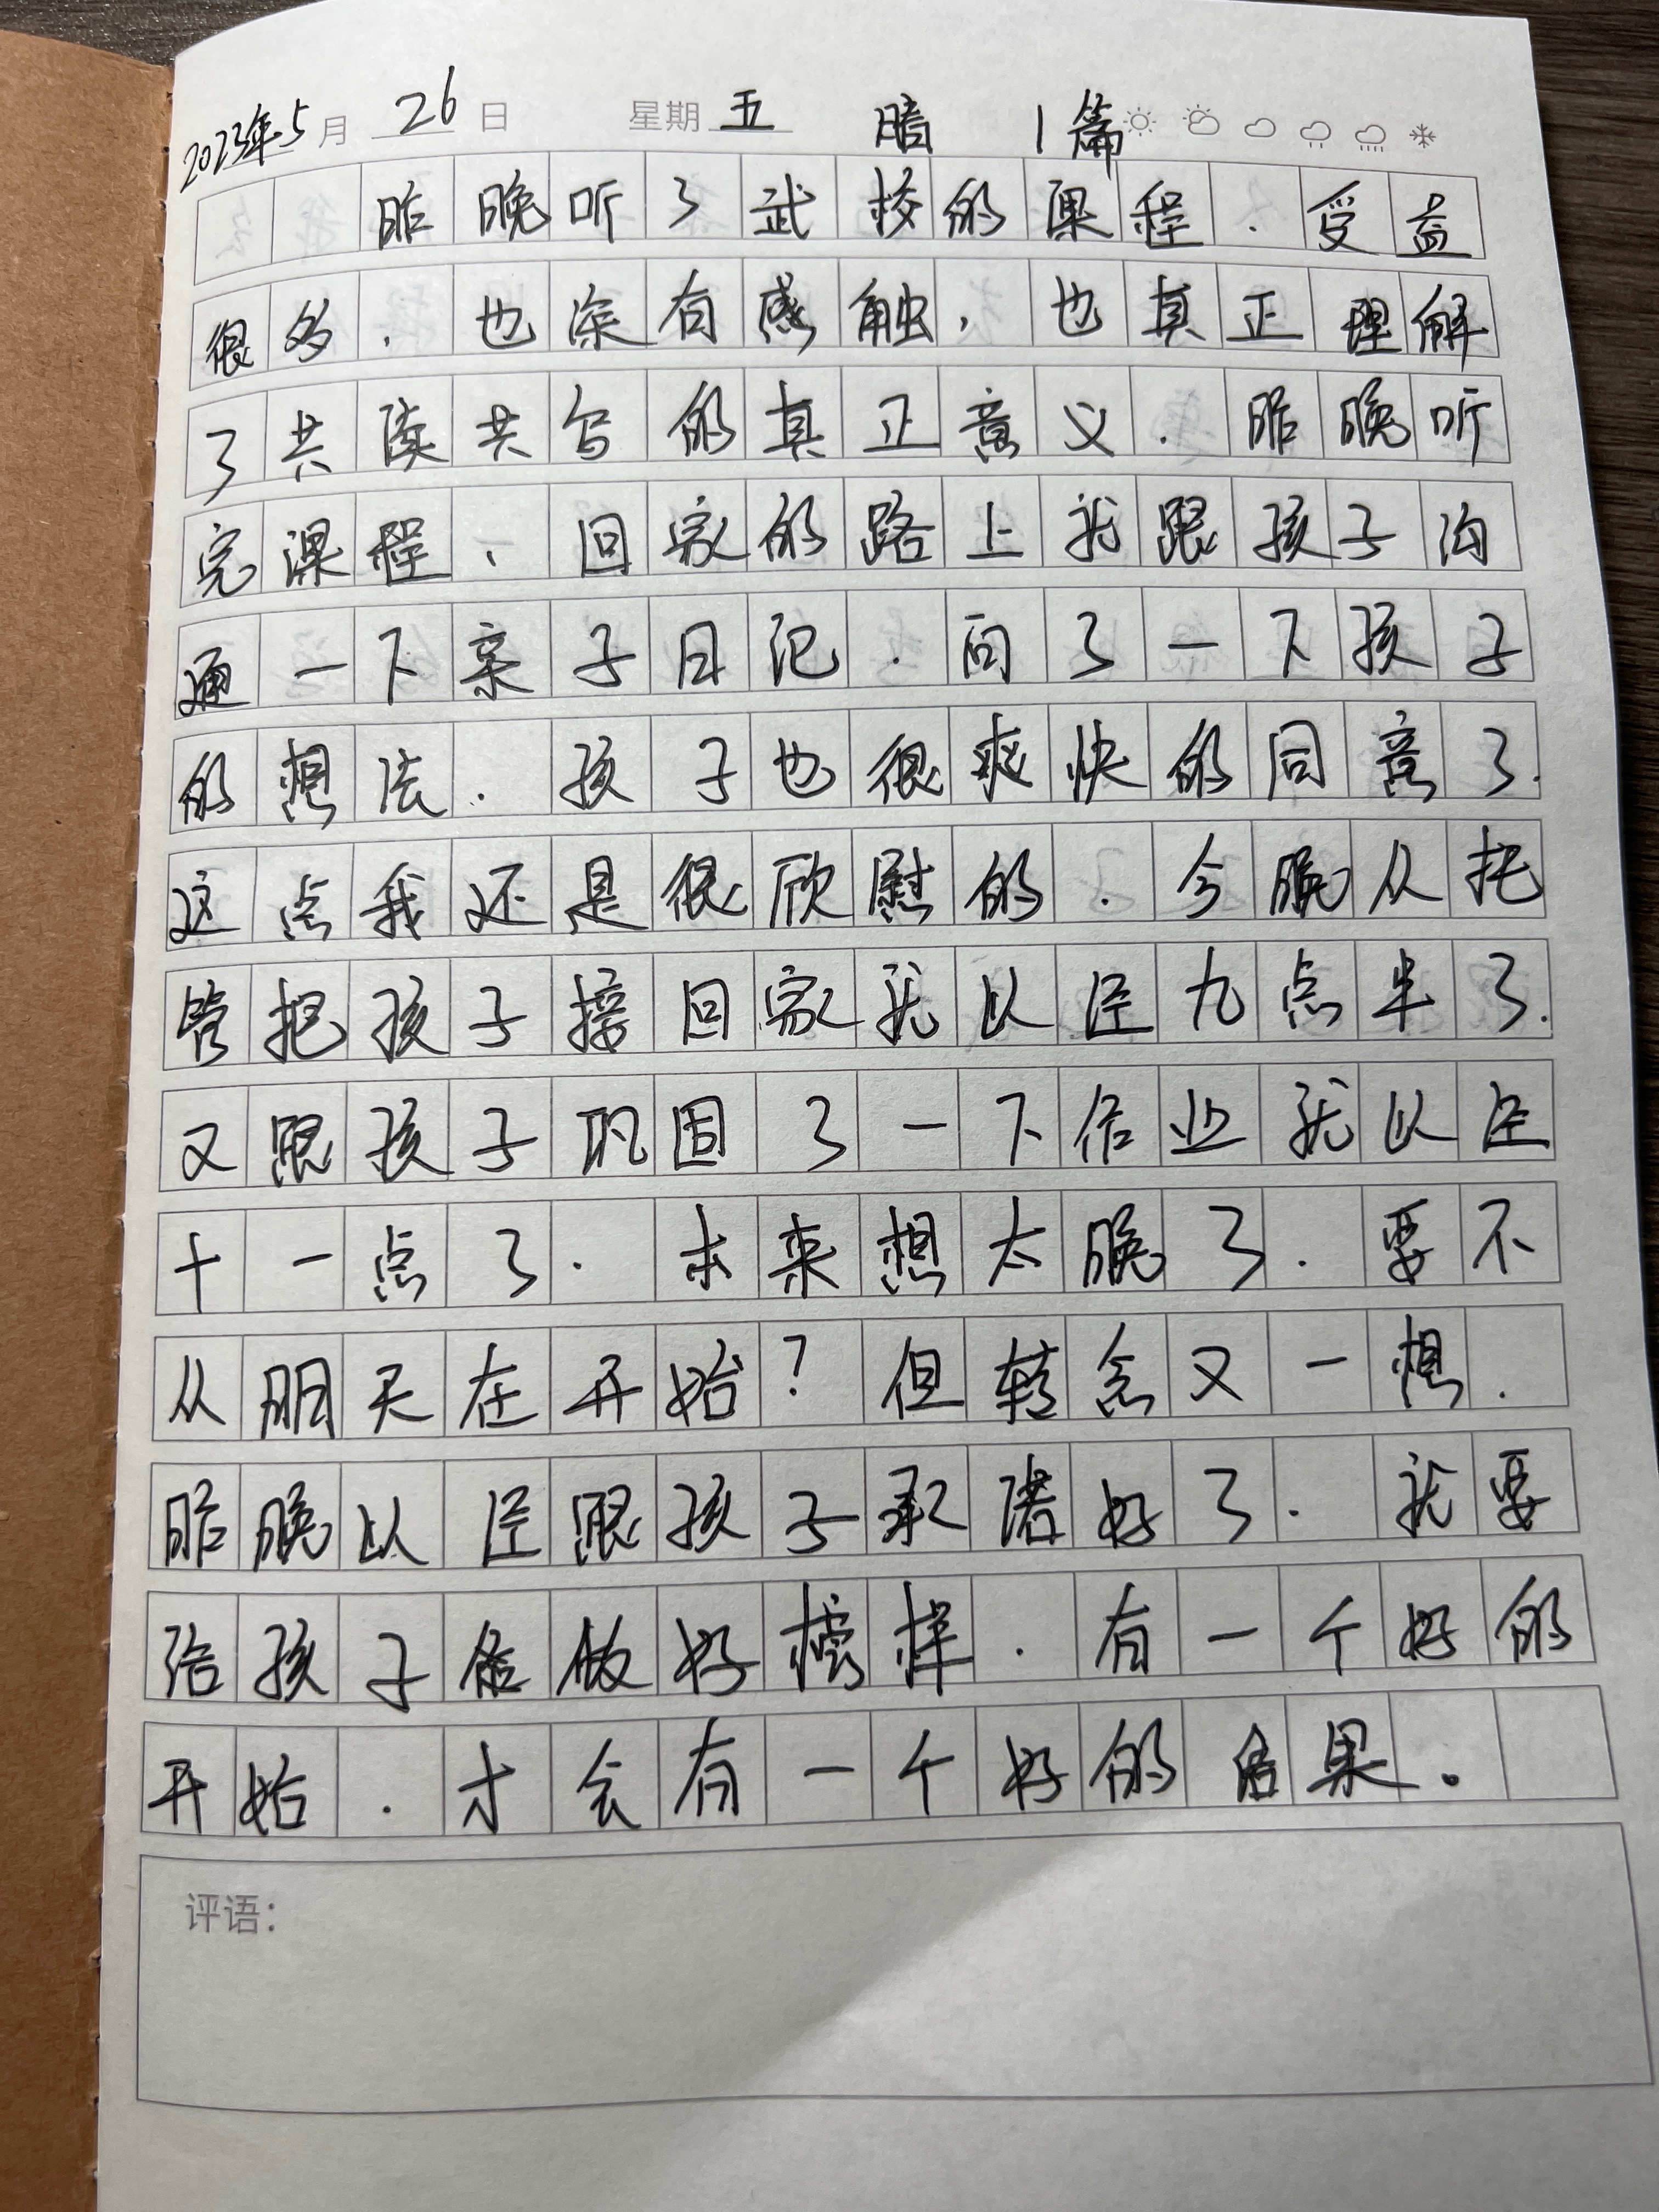 2023年5月26日 星期五 暗 1篇
昨晚听了武校的课程.受益
很多.也深有感触,也真正理解
了共读共写的真正意义.昨晚听
完课程、回家的路上就跟孩子沟
通一下亲子日记.问了一下孩子
的想法.孩子也很爽快的同意了.
这点我还是很欣慰的.今晚从托
管把孩子接回家就以经九点半了.
又跟孩子巩固了一下作业就以经
十一点了.本来想太晚了.要不
从明天在开始?但转念又一想.
昨晚以经跟孩子承诺好了.就要
给孩子做好榜样.有一个好的
开始.才会有一个好的结果。
评语: